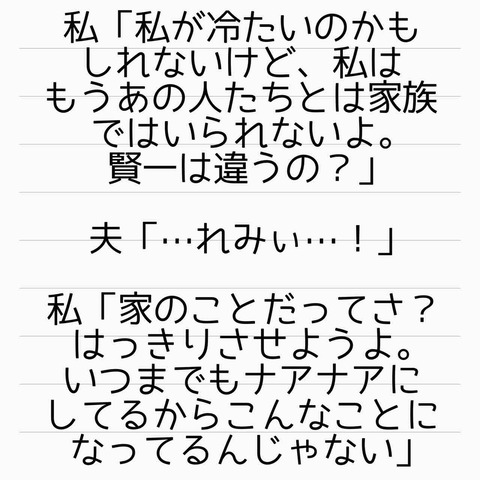 私「私が冷たいのかも
しれないけど、私は
もうあの人たちとは家族
ではいられないよ。
賢一は違うの？」
夫「…れみぃ…！」
私「家のことだってさ？
はっきりさせようよ。
いつまでもナアナアに
してるからこんなことに
なってるんじゃない」